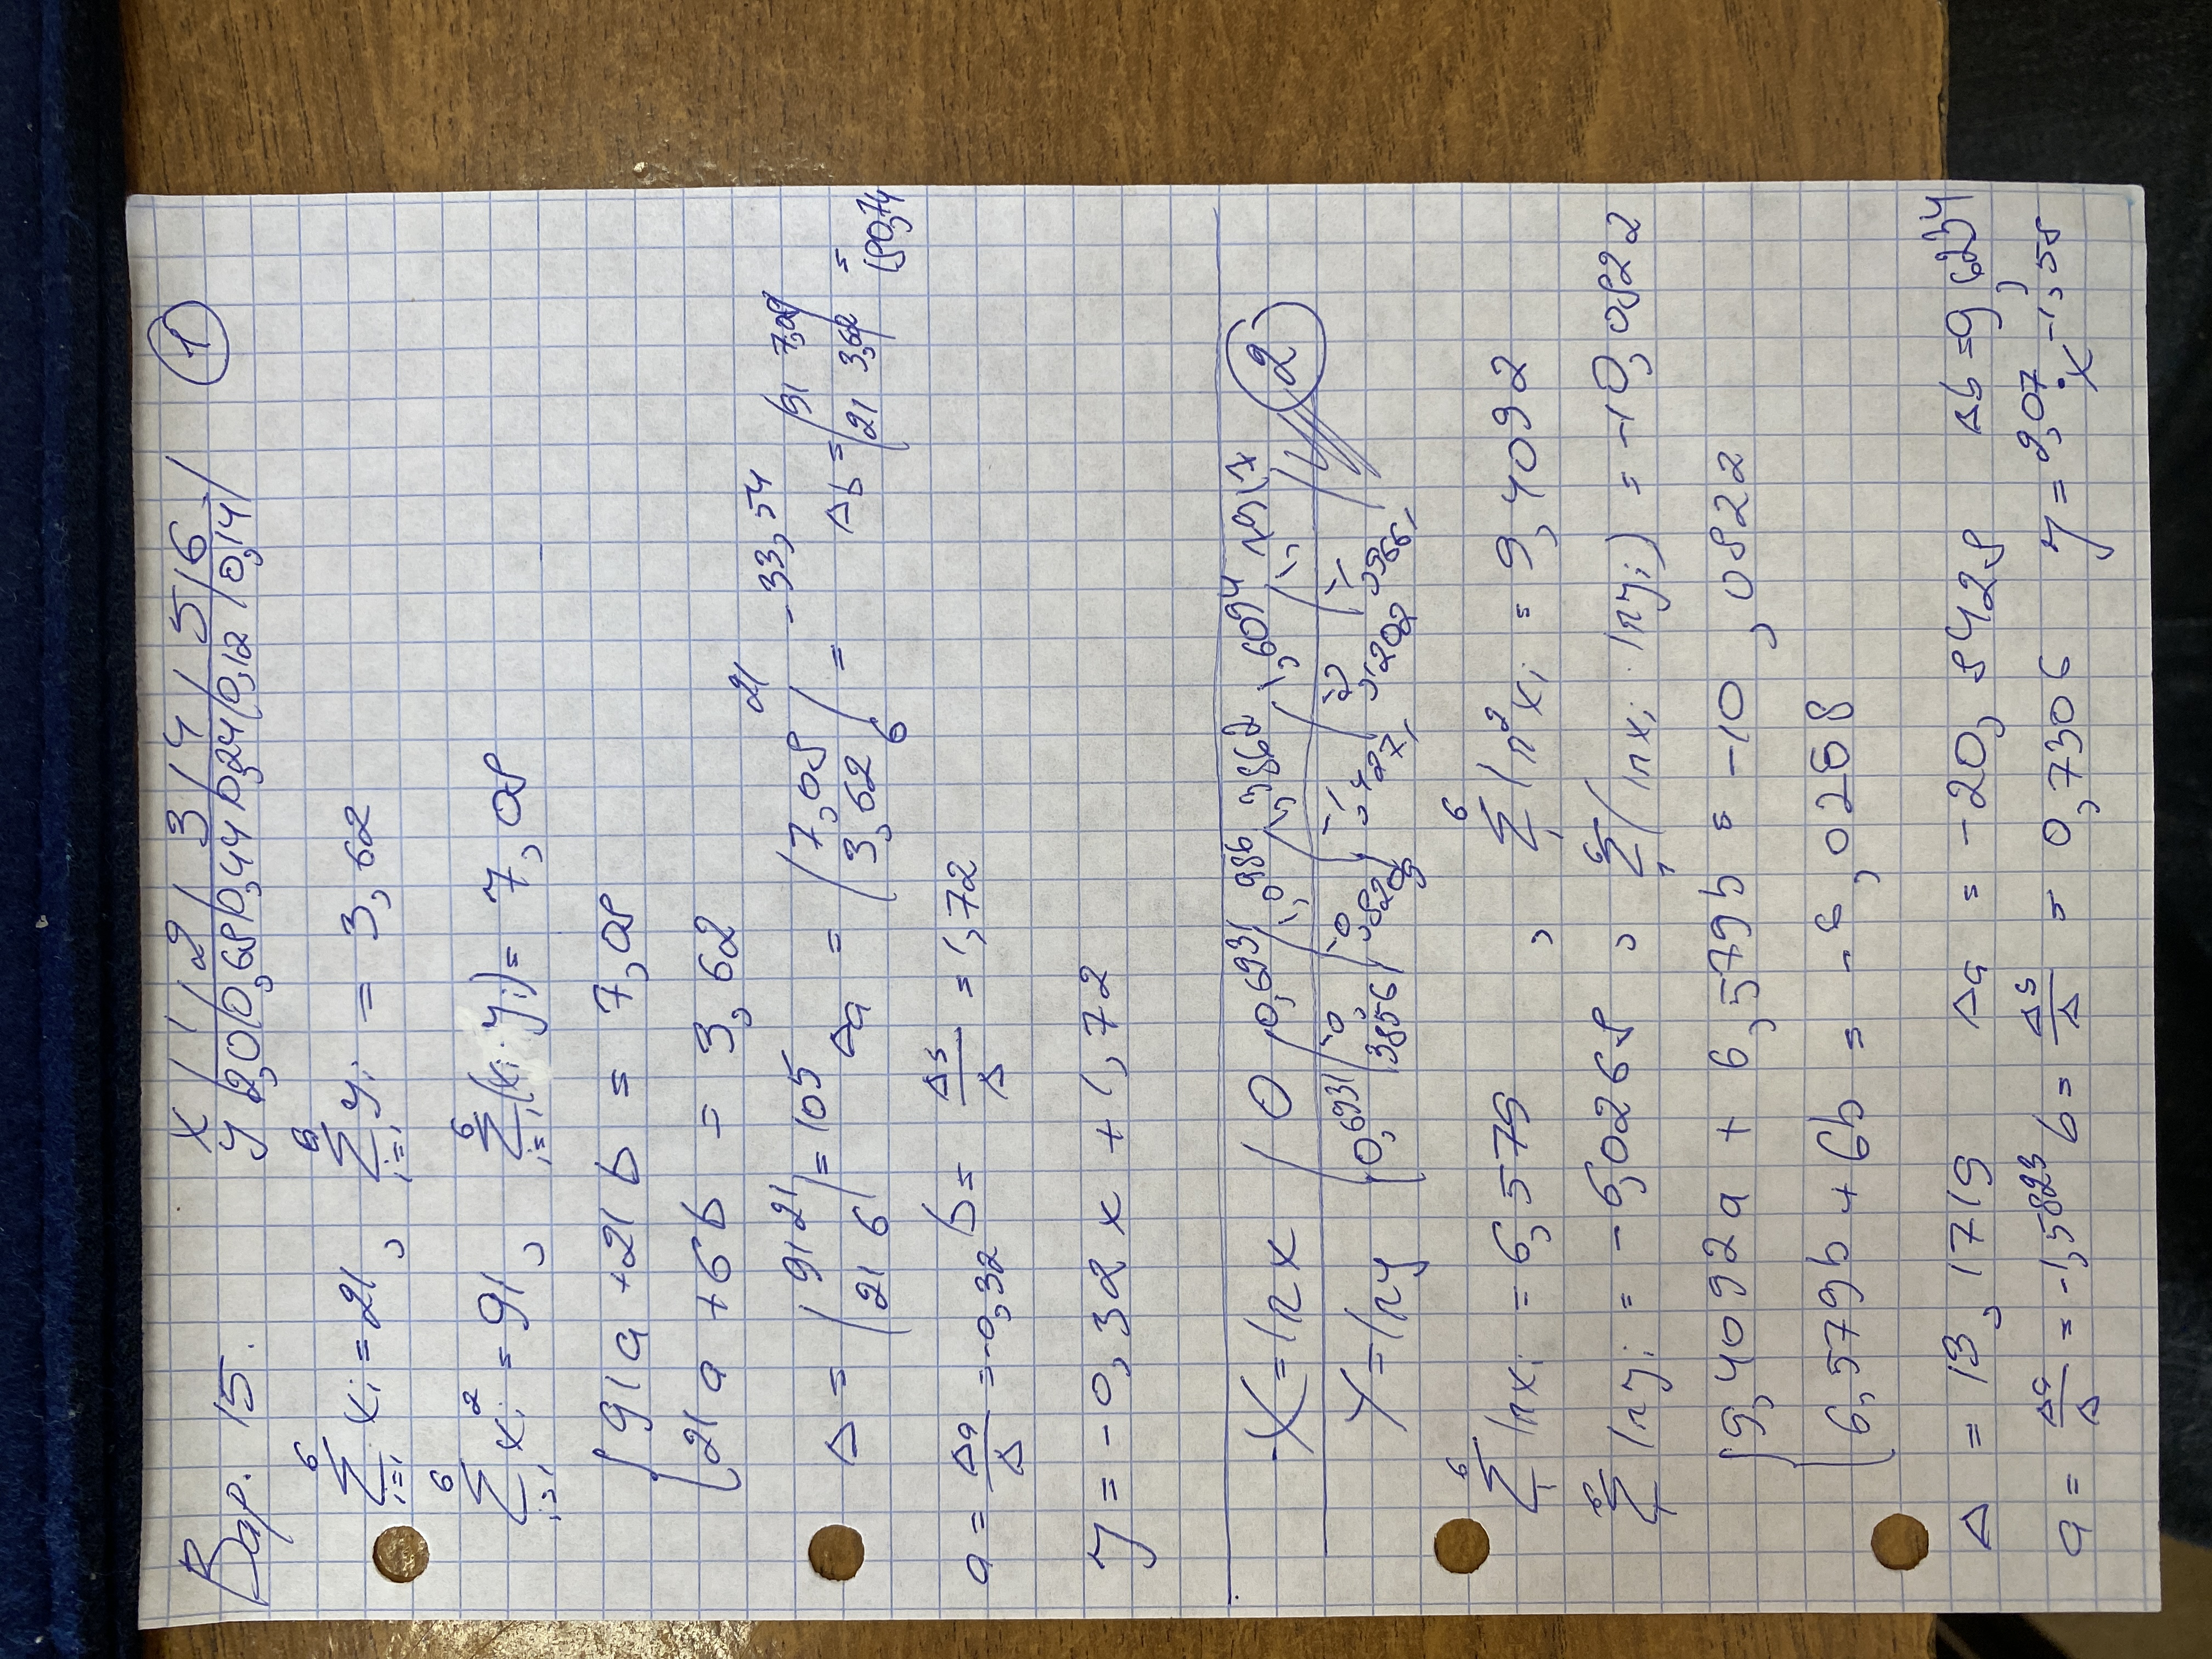 Вар. 15. x | 1 | 2 | 3 | 4 | 5 | 6 | ①
y | 2,0 | 0,68 | 0,44 | 0,24 | 0,12 | 0,14 |
6∑i=1 xi = 21, 6∑i=1 yi = 3,62
6∑i=1 xi² = 91, 6∑i=1 (xi · yi) = 7,08
{ 91a + 21b = 7,08
21a + 6b = 3,62
Δ = |91 21 / 21 6| = 105 Δa = |7,08 21 / 3,62 6| = -33,54 Δb = |91 7,08 / 21 3,62| = 180,74
a = Δa/Δ = -0,32 b = Δb/Δ = 1,72
y = -0,32x + 1,72
X = ln x | 0 | 0,6931 | 1,0986 | 1,3862 | 1,6094 | 1,7917 | ②
Y = ln y | 0,6931 | -0,3856 | -0,8209 | -1,4271 | -2,1202 | -1,9661
6∑1 ln xi = 6,579, 6∑1 ln² xi = 9,4092
6∑1 ln yi = -6,0268, 6∑1 (ln xi · ln yi) = -10,0822
{ 9,4092a + 6,579b = -10,0822
6,579b + 6b = -6,0268
Δ = 13,1719 Δa = -20,8428 Δb = 9,6234
a = Δa/Δ = -1,5823 b = Δb/Δ = 0,7306 y = 2,07 · x^-1,58